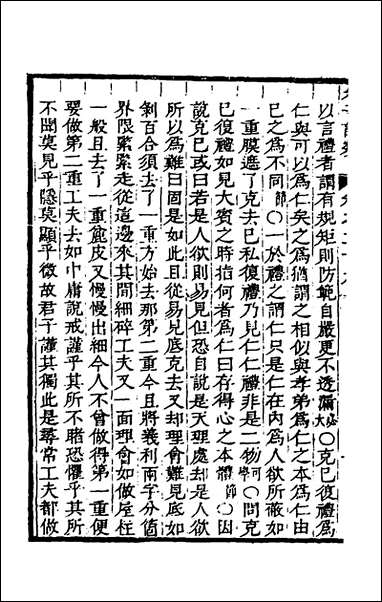 以言禮者謂有規矩則防範自嚴更不透漏必大○克已復禮爲
仁與可以爲仁矣之爲猶謂之相似與孝弟爲仁之本爲仁由
已之爲不同節○一於禮之謂仁只是仁在內爲人欲所蔽如
一重膜遮了克去已私復禮乃見仁仁禮非是二物可學○問克
已復禮如見大賓之時指何者爲仁曰存得心之本體節○因
說克已或曰若是人欲則易見但恐自說是天理處却是人欲
所以爲難曰固是如此且從易見底克去又却理會難見底如
剝百合須去了一重方始去那第二重今且將義利兩字分箇
界限緊緊走從這邊來其間細碎工夫又一面理會如做屋柱
一般且去了一重麄皮又慢慢出細今人不曾做得第一重便
要做第二重工夫去如中庸說戒謹乎其所不睹恐懼乎其所
不聞莫見乎隱莫顯乎微故君子謹其獨此是尋常工夫都做